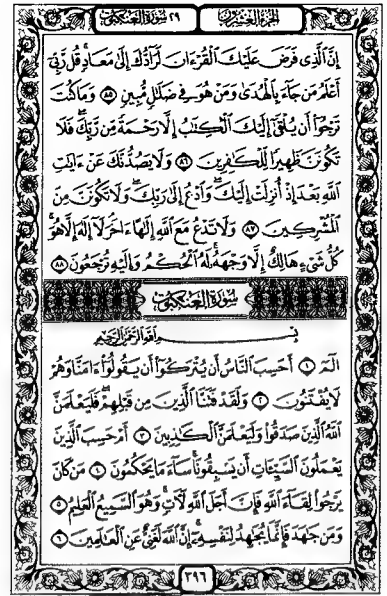 الجزء العشرون
سورة العنكبوت ٢٩
إِنَّ ٱلَّذِى فَرَضَ عَلَيْكَ ٱلْقُرْءَانَ لَرَآدُّكَ إِلَىٰ مَعَادٍ ۚ قُل رَّبِّىٓ
أَعْلَمُ مَن جَآءَ بِٱلْهُدَىٰ وَمَنْ هُوَ فِى ضَلَٰلٍ مُّبِينٍ ٨٥ وَمَا كُنتَ
تَرْجُوٓا۟ أَن يُلْقَىٰٓ إِلَيْكَ ٱلْكِتَٰبُ إِلَّا رَحْمَةً مِّن رَّبِّكَ ۖ فَلَا
تَكُونَنَّ ظَهِيرًا لِّلْكَٰفِرِينَ ٨٦ وَلَا يَصُدُّنَّكَ عَنْ ءَايَٰتِ
ٱللَّهِ بَعْدَ إِذْ أُنزِلَتْ إِلَيْكَ ۖ وَٱدْعُ إِلَىٰ رَبِّكَ ۖ وَلَا تَكُونَنَّ مِنَ
ٱلْمُشْرِكِينَ ٨٧ وَلَا تَدْعُ مَعَ ٱللَّهِ إِلَٰهًا ءَاخَرَ ۘ لَآ إِلَٰهَ إِلَّا هُوَ ۚ
كُلُّ شَىْءٍ هَالِكٌ إِلَّا وَجْهَهُۥ ۚ لَهُ ٱلْحُكْمُ وَإِلَيْهِ تُرْجَعُونَ ٨٨
سورة العنكبوت
بِسْمِ ٱللَّهِ ٱلرَّحْمَٰنِ ٱلرَّحِيمِ
الٓمٓ ١ أَحَسِبَ ٱلنَّاسُ أَن يُتْرَكُوٓا۟ أَن يَقُولُوٓا۟ ءَامَنَّا وَهُمْ
لَا يُفْتَنُونَ ٢ وَلَقَدْ فَتَنَّا ٱلَّذِينَ مِن قَبْلِهِمْ ۖ فَلَيَعْلَمَنَّ
ٱللَّهُ ٱلَّذِينَ صَدَقُوا۟ وَلَيَعْلَمَنَّ ٱلْكَٰذِبِينَ ٣ أَمْ حَسِبَ ٱلَّذِينَ
يَعْمَلُونَ ٱلسَّيِّـَٔاتِ أَن يَسْبِقُونَا ۚ سَآءَ مَا يَحْكُمُونَ ٤ مَن كَانَ
يَرْجُوا۟ لِقَآءَ ٱللَّهِ فَإِنَّ أَجَلَ ٱللَّهِ لَـَٔاتٍ ۚ وَهُوَ ٱلسَّمِيعُ ٱلْعَلِيمُ ٥
وَمَن جَٰهَدَ فَإِنَّمَا يُجَٰهِدُ لِنَفْسِهِۦٓ ۚ إِنَّ ٱللَّهَ لَغَنِىٌّ عَنِ ٱلْعَٰلَمِينَ ٦
٣٩٦